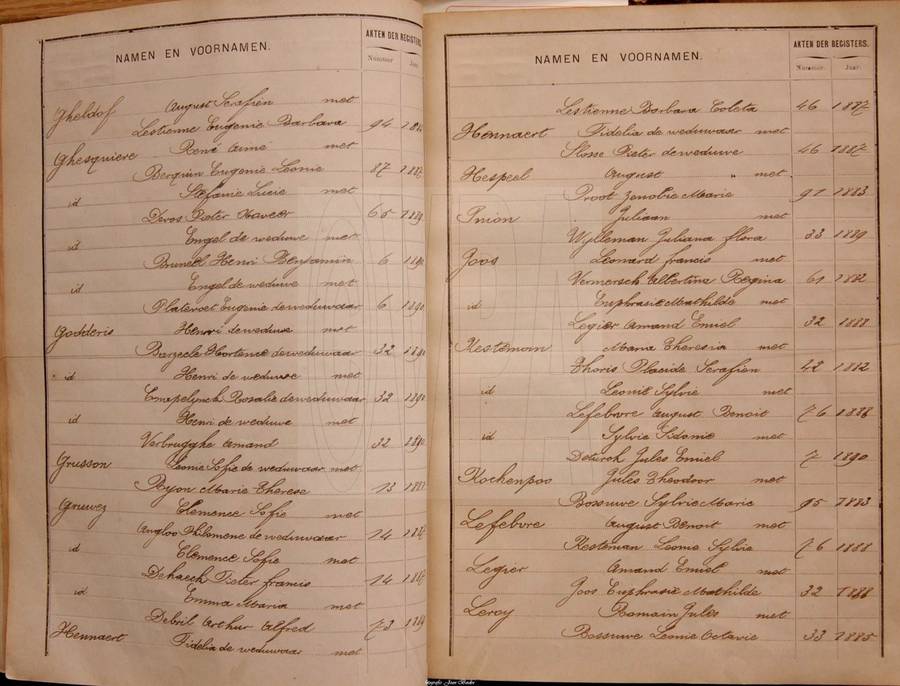 NAMEN EN VOORNAMEN.
AKTEN DER REGISTERS.
Nummer Jaar
Gheldof August Serafien met
Lestienne Eugenie Barbara 94
Ghesquiere René Aimé met
Berquin Eugenie Leonie 87 1887
id Stefanie Lucie met
Devos Pieter Xaveer 65 1889
id Engel de weduwe met
Bruneel Henri Benjamin 6 1890
id Engel de weduwe met
Platevoet Eugenie de weduwaar 6 1890
Godderis Henri de weduwe met
Barzeele Hortence de weduwaar 32 1890
id Henri de weduwe met
Rosalie de weduwaar 32 1890
id Henri de weduwe met
Verbrugghe Amand 32 1890
Grusson Leonie Sofie de weduwaar met
Ryon Marie Therese 13
Gruwez Clemence Sofie met
Angloo Philomene de weduwaar 14
id Clemence Sofie met
Dehaech Pieter francis 14 1887
id Emma Maria met
Debril Arthur Alfred 73 1889
Hennaert Fidelia de weduwaar met
NAMEN EN VOORNAMEN.
AKTEN DER REGISTERS.
Nummer. Jaar.
Lestienne Barbara Coleta 46 1887
Hennaert Fidelia de weduwaar met
Slosse Pieter de weduwe 46 1887
Hespeel August " met
Proot Zenobie Marie 91 1883
Inion Juliaan met
Wylleman Juliana flora 33 1889
Joos Leonard francis met
Vermersch Albertina Regina 61 1882
id Euphrasie Mathilde met
Legier Amand Emiel 32 1888
Kestemom Maria Theresia met
Thoris Placide Serafien 42 1882
id Leonie Sylvie met
Lefebvre August Benoit 76 1888
id Sylvie Sidonie met
Deturck Jules Emiel 7 1890
Kochenpoo Jules Theodoor met
Bossuwe Sylvie Marie 95 1883
Lefebvre August Benoit met
Kesteman Leonie Sylvie 76 1888
Legier Amand Emiel met
Joos Euphrasie Mathilde 32 1888
Leroy Romain Jules met
Bossuwe Leonie Octavie 33 1885